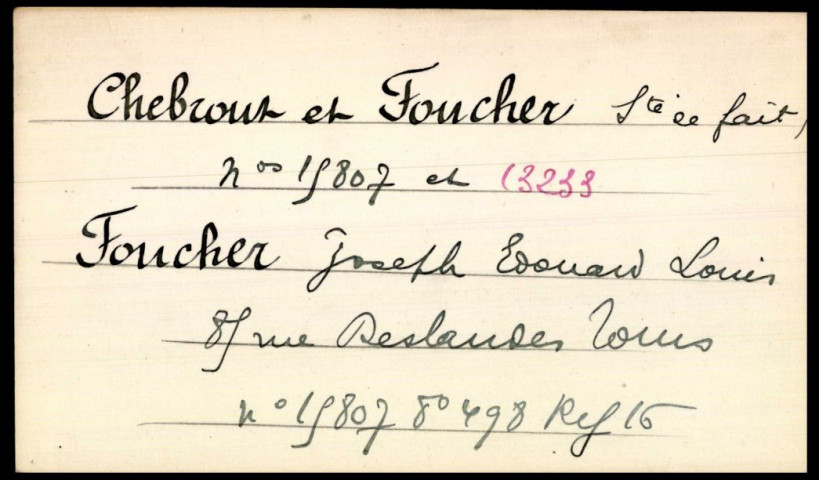 Chebrout et Foucher Sté de fait,
nos 15807 et 13233
Foucher Joseph Edouard Louis
85 rue Deslandes Tours
n° 15807 f° 498 Reg 16